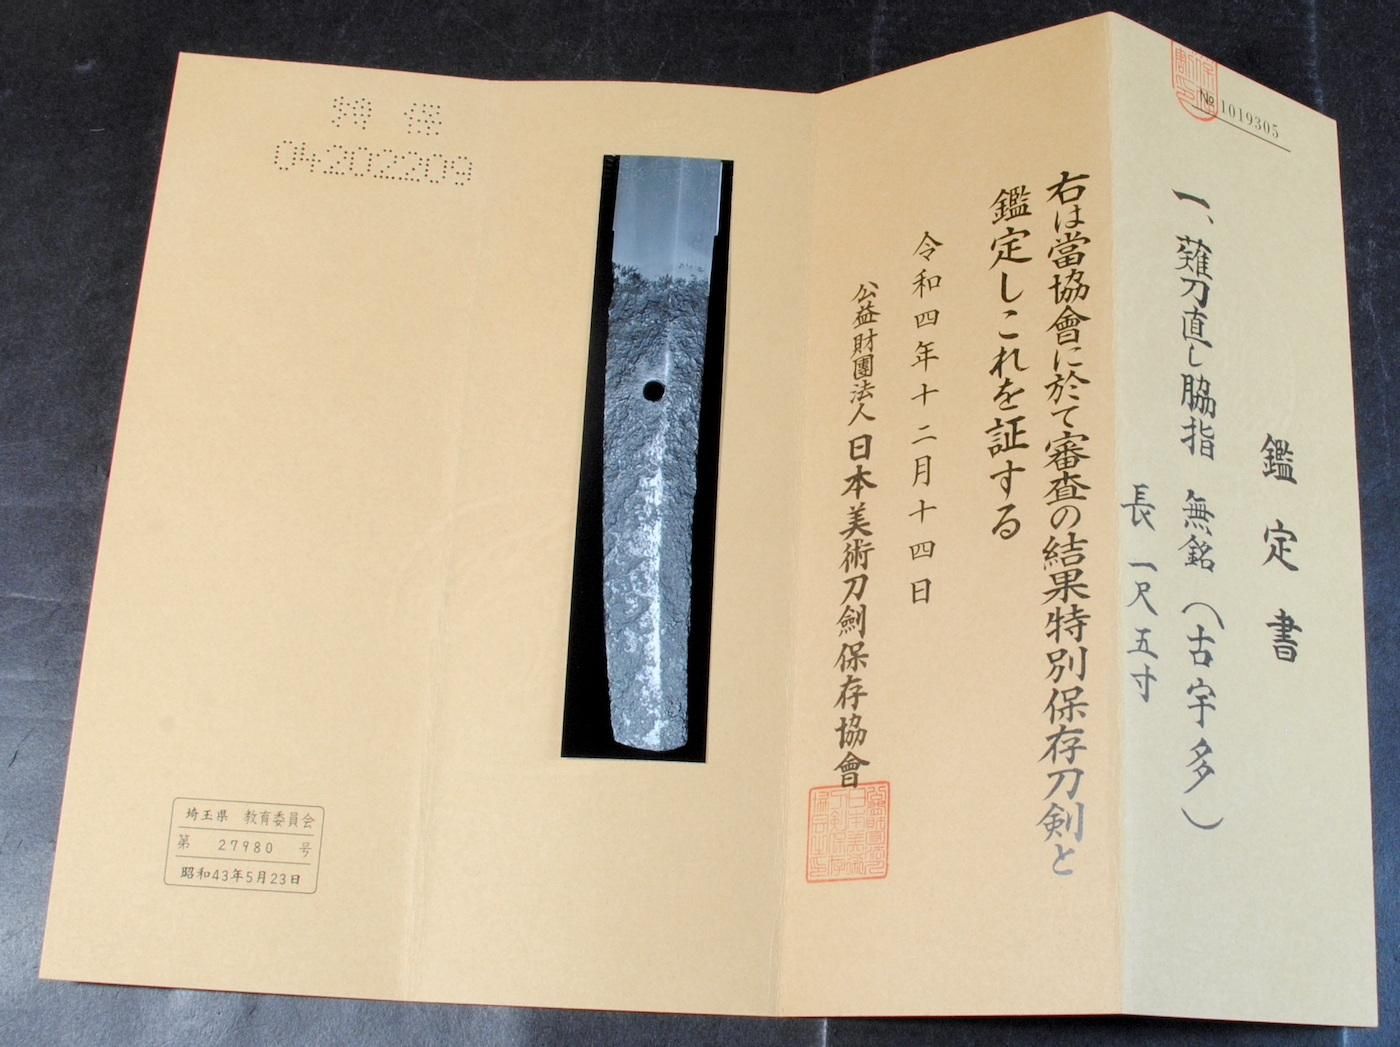 № 1019305
鑑定書
一、薙刀直し脇指 無銘（古宇多）
長 一尺五寸
右は當協會に於て審査の結果特別保存刀劍と
鑑定しこれを証する
令和四年十二月十四日
公益財團法人 日本美術刀劍保存協會
特 保
04202209
埼玉県 教育委員会
第 27980 号
昭和43年5月23日